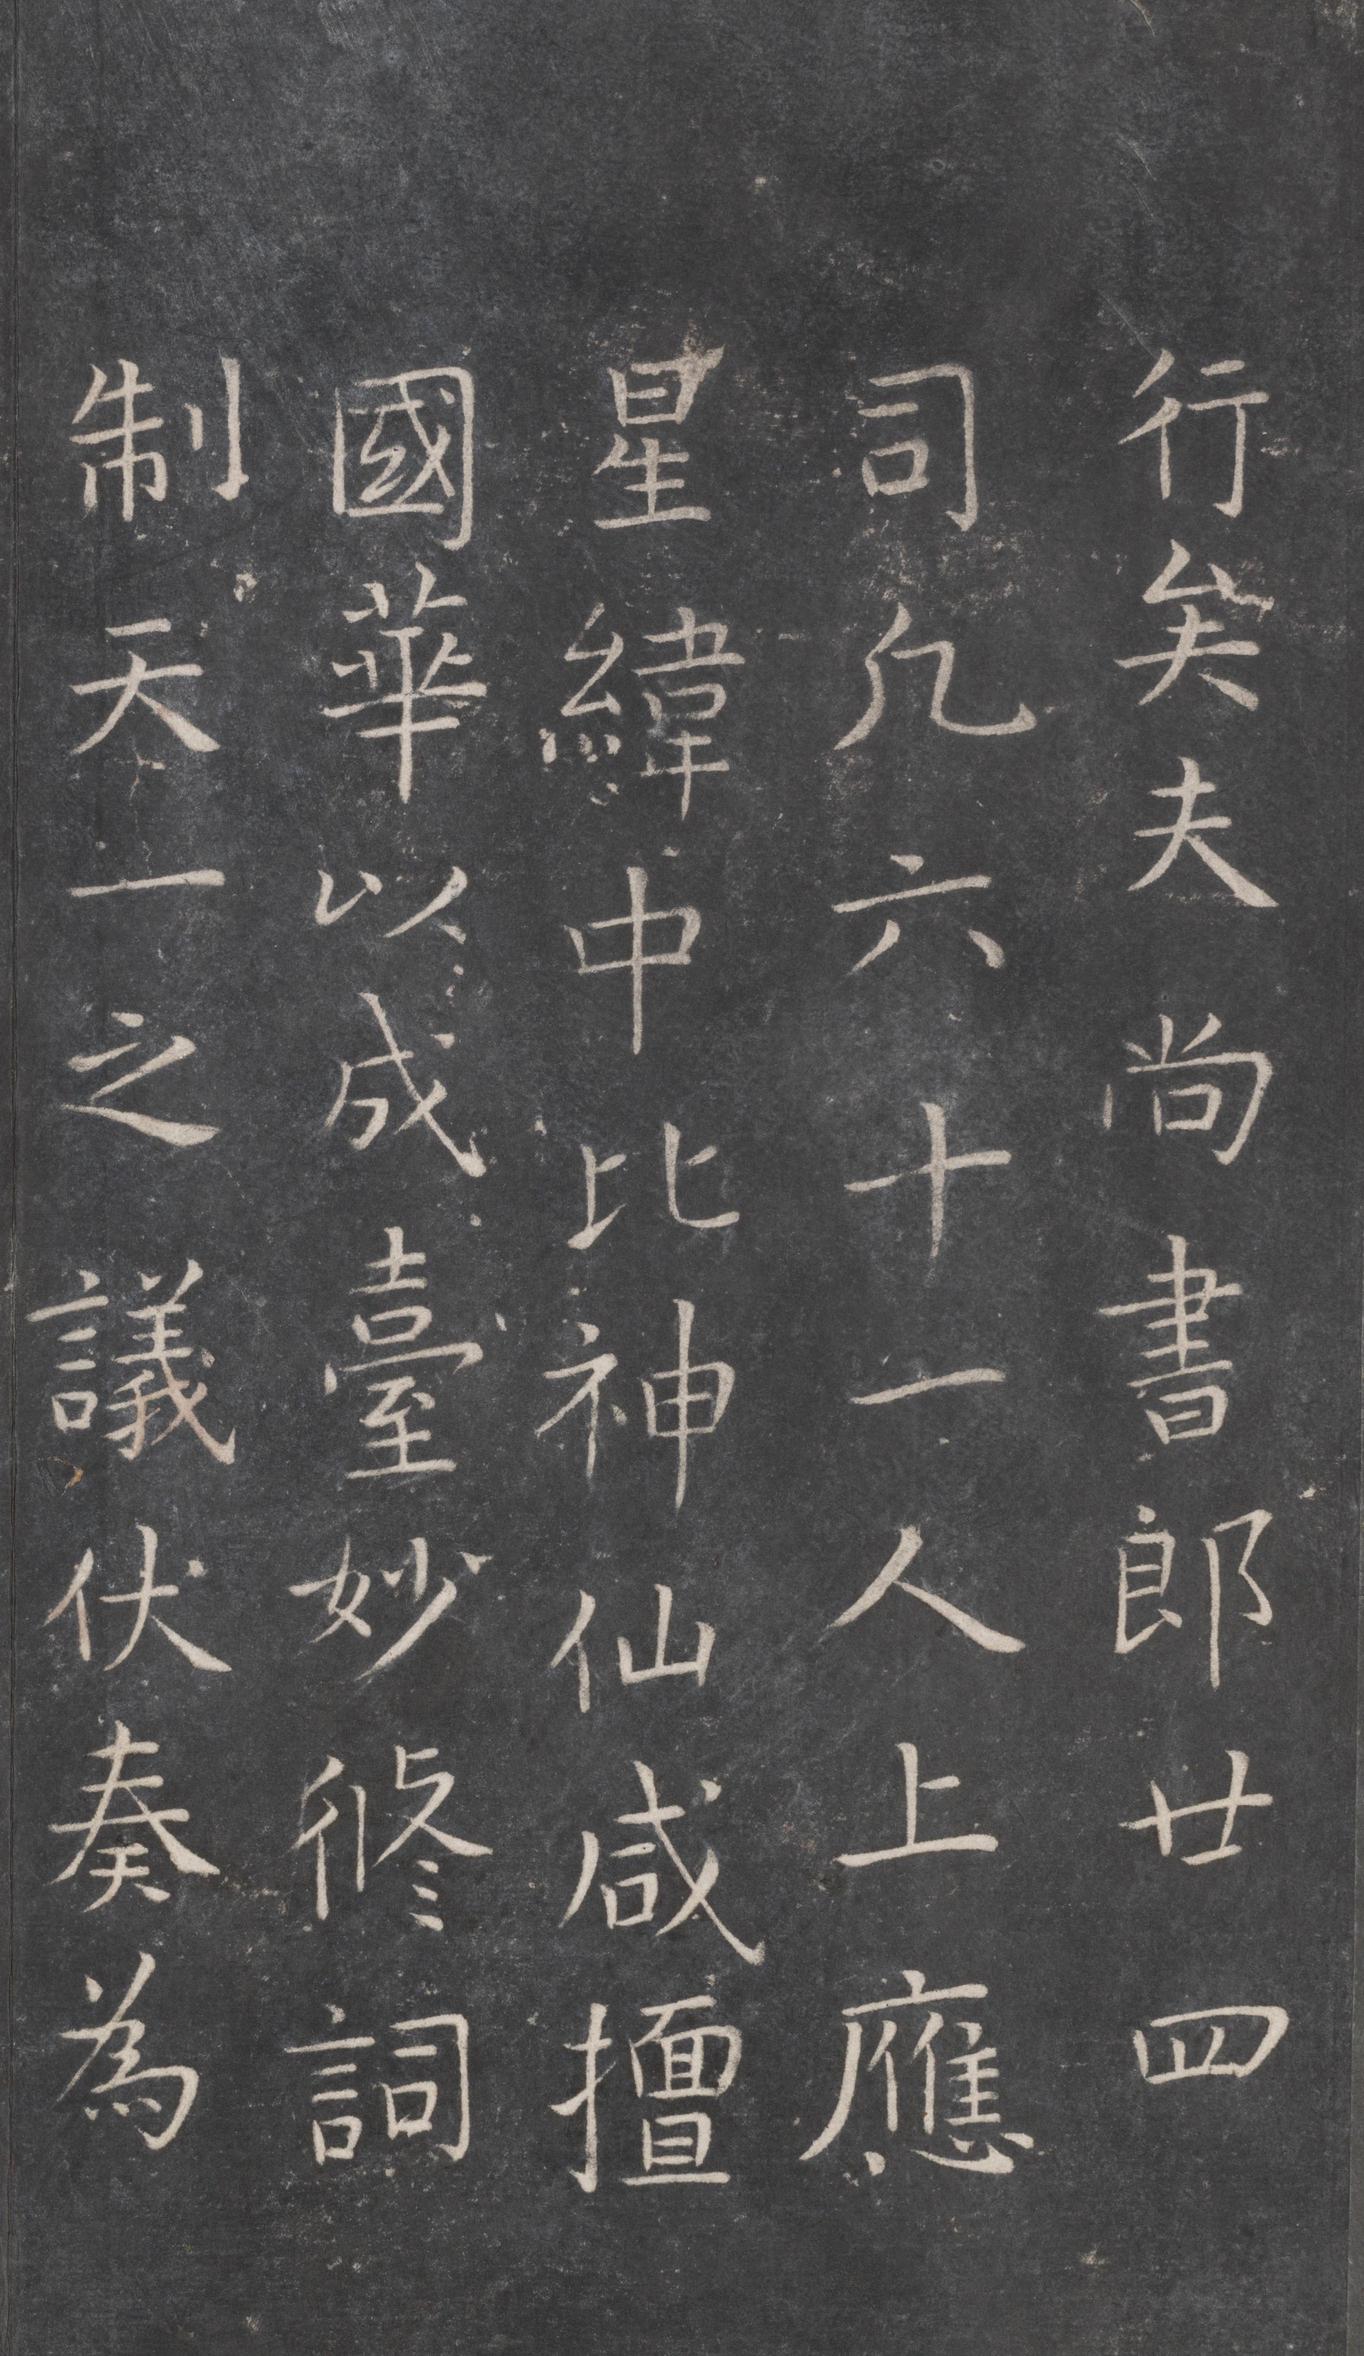 行矣夫尚書郎廿四
司凡六十一人上應
星緯中比神仙咸擅
國華以成臺妙修詞
制天一之議伏奏為